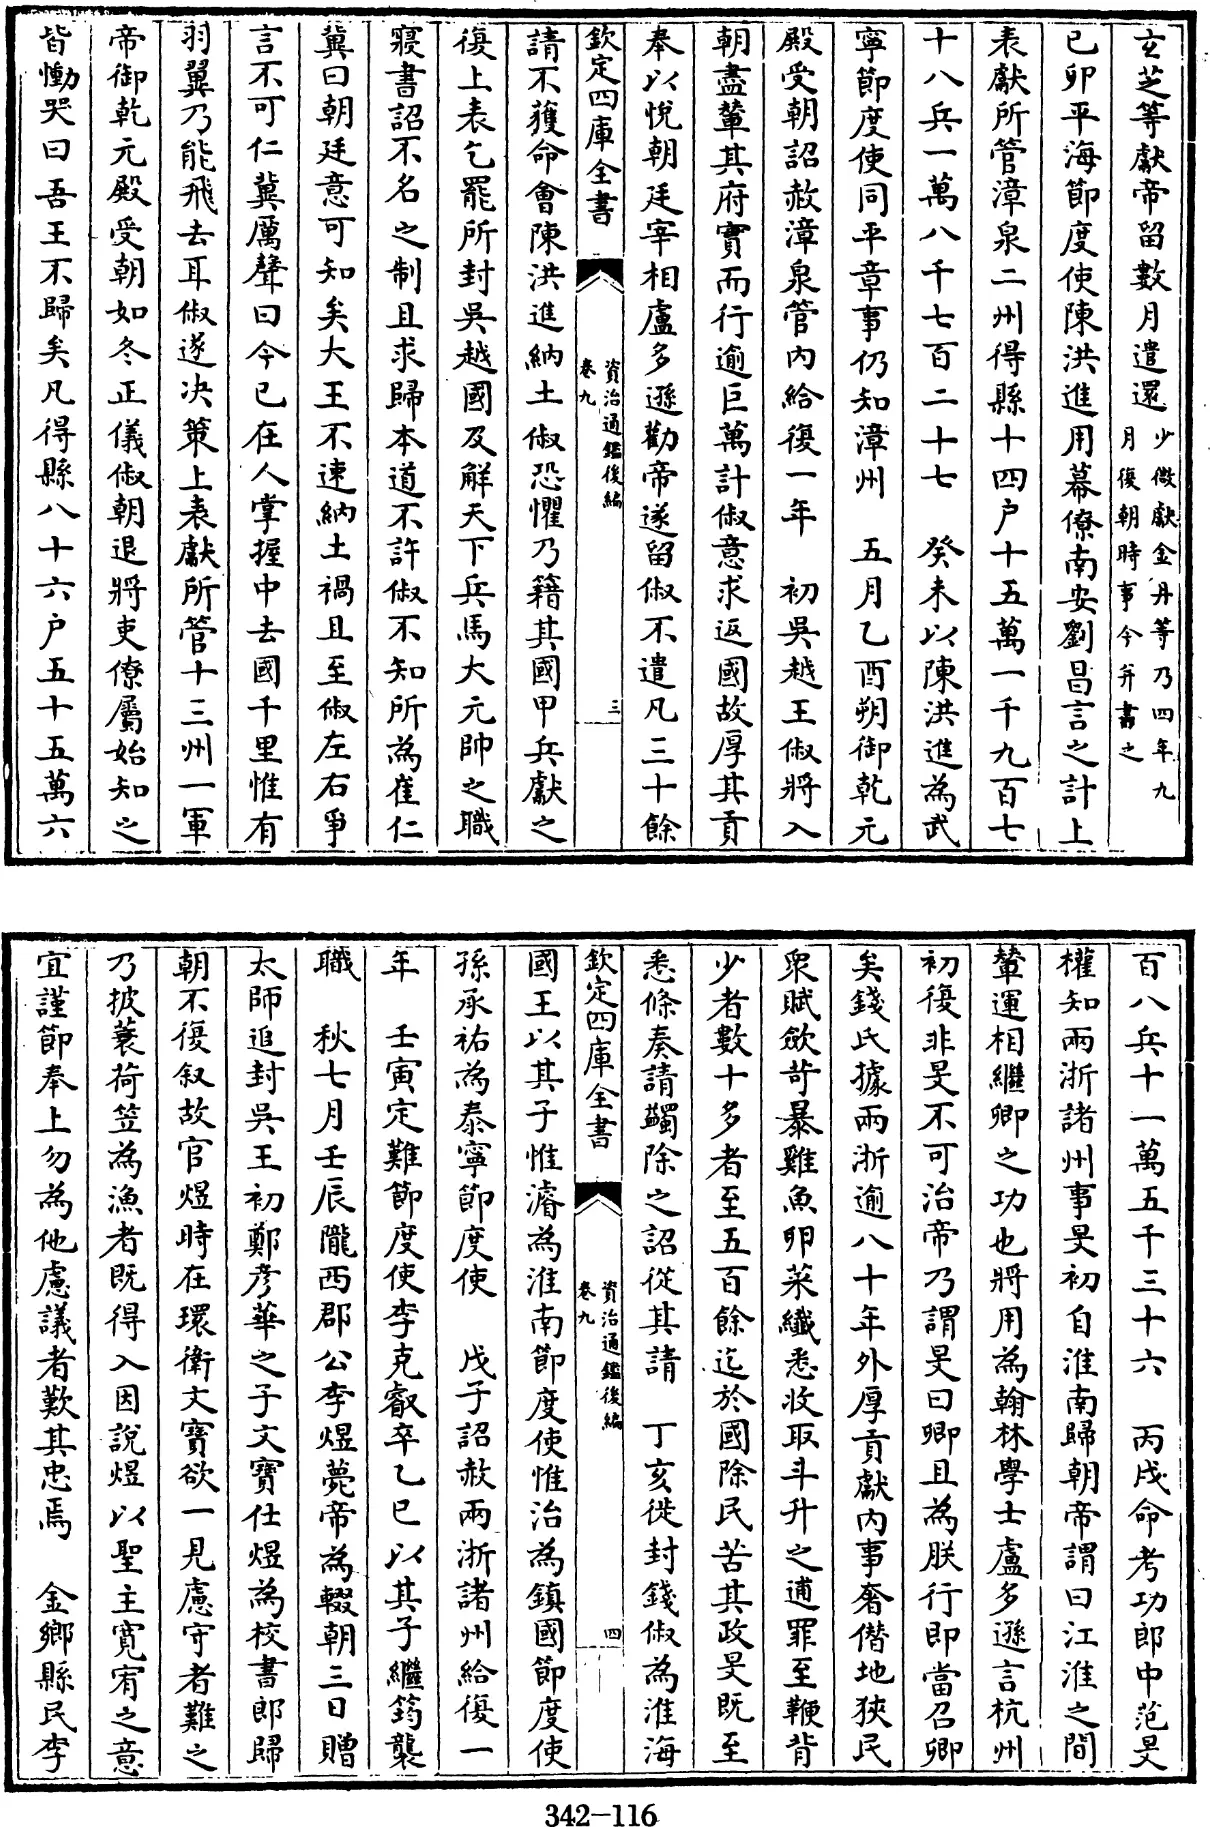 玄芝等獻帝留數月遣還少微獻金丹等乃四年九
月復朝時事今并書之
己卯平海節度使陳洪進用幕僚南安劉昌言之計上
表獻所管漳泉二州得縣十四户十五萬一千九百七
十八兵一萬八千七百二十七　癸未以陳洪進為武
寧節度使同平章事仍知漳州　五月乙酉朔御乾元
殿受朝詔赦漳泉管内給復一年　初吳越王俶將入
朝盡輦其府實而行逾巨萬計俶意求返國故厚其貢
奉以悅朝廷宰相盧多遜勸帝遂留俶不遣凡三十餘
欽定四庫全書
資治通鑑後編
卷九
三
請不獲命會陳洪進納土俶恐懼乃籍其國甲兵獻之
復上表乞罷所封吳越國及解天下兵馬大元帥之職
寢書詔不名之制且求歸本道不許俶不知所為崔仁
冀曰朝廷意可知矣大王不速納土禍且至俶左右爭
言不可仁冀厲聲曰今已在人掌握中去國千里惟有
羽翼乃能飛去耳俶遂决策上表獻所管十三州一軍
帝御乾元殿受朝如冬正儀俶朝退將吏僚屬始知之
皆慟哭曰吾王不歸矣凡得縣八十六户五十五萬六
百八兵十一萬五千三十六　丙戌命考功郎中范旻
權知兩浙諸州事旻初自淮南歸朝帝謂曰江淮之間
輦運相繼卿之功也將用為翰林學士盧多遜言杭州
初復非旻不可治帝乃謂旻曰卿且為朕行即當召卿
矣錢氏據兩浙逾八十年外厚貢獻内事奢僭地狹民
衆賦歛苛暴雞魚卵菜纖悉收取斗升之逋罪至鞭背
少者數十多者至五百餘迄於國除民苦其政旻既至
悉條奏請蠲除之詔從其請　丁亥徙封錢俶為淮海
欽定四庫全書
資治通鑑後編
卷九
四
國王以其子惟濬為淮南節度使惟治為鎮國節度使
孫承祐為泰寧節度使　戊子詔赦兩浙諸州給復一
年　壬寅定難節度使李克睿卒乙巳以其子繼筠襲
職　秋七月壬辰隴西郡公李煜薨帝為輟朝三日贈
太師追封吳王初鄭彥華之子文寶仕煜為校書郎歸
朝不復叙故官煜時在環衛文寶欲一見慮守者難之
乃披蓑荷笠為漁者既得入因說煜以聖主寬宥之意
宜謹節奉上勿為他慮議者歎其忠焉　金鄉縣民李
342-116